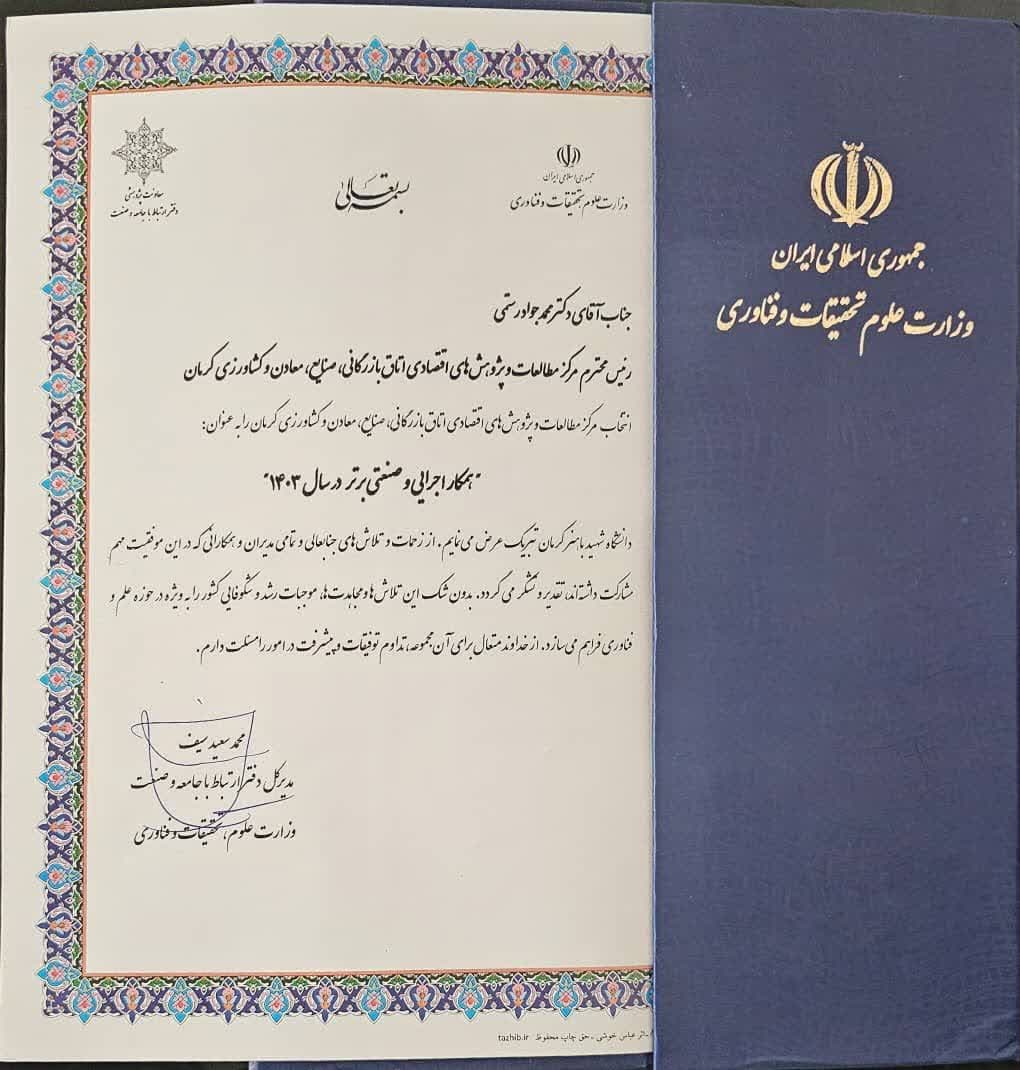 جمهوری اسلامی ایران
وزارت علوم تحقیقات و فناوری
جمهوری اسلامی ایران
وزارت علوم، تحقیقات و فناوری
بسمه تعالی
معاونت پژوهشی
دفتر ارتباط با جامعه و صنعت
جناب آقای دکتر محمدجواد رستمی
رئیس محترم مرکز مطالعات و پژوهش‌های اقتصادی اتاق بازرگانی، صنایع، معادن و کشاورزی کرمان
انتخاب مرکز مطالعات و پژوهش‌های اقتصادی اتاق بازرگانی، صنایع، معادن و کشاورزی کرمان را به عنوان:
"همکار اجرایی و صنعتی برتر در سال ۱۴۰۳"
دانشگاه شهید باهنر کرمان تبریک عرض می‌نمایم. از زحمات و تلاش‌های جنابعالی و تمامی مدیران و همکارانی که در این موفقیت مهم
مشارکت داشته‌اند، تقدیر و تشکر می‌گردد. بدون شک این تلاش‌ها و مجاهدت‌ها، موجبات رشد و شکوفایی کشور را به ویژه در حوزه علم و
فناوری فراهم می‌سازد. از خداوند متعال برای آن مجموعه، تداوم توفیقات و پیشرفت در امور را مسئلت دارم.
محمد سعید سیف
مدیرکل دفتر ارتباط با جامعه و صنعت
وزارت علوم، تحقیقات و فناوری
اثر عباس خوشی - حق چاپ محفوظ tazhib.ir